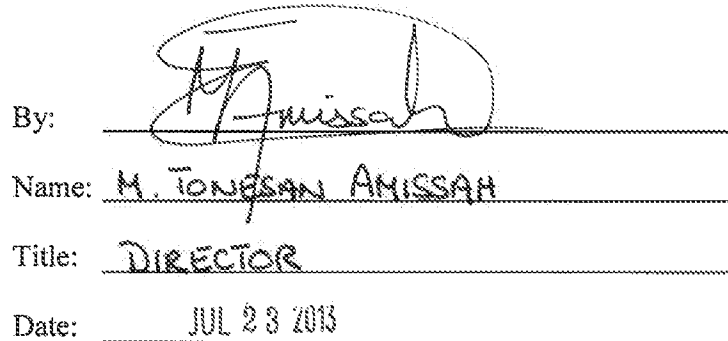 By: Amissah
Name: M. TONESAN AMISSAH
Title: DIRECTOR
Date: JUL 23 2013